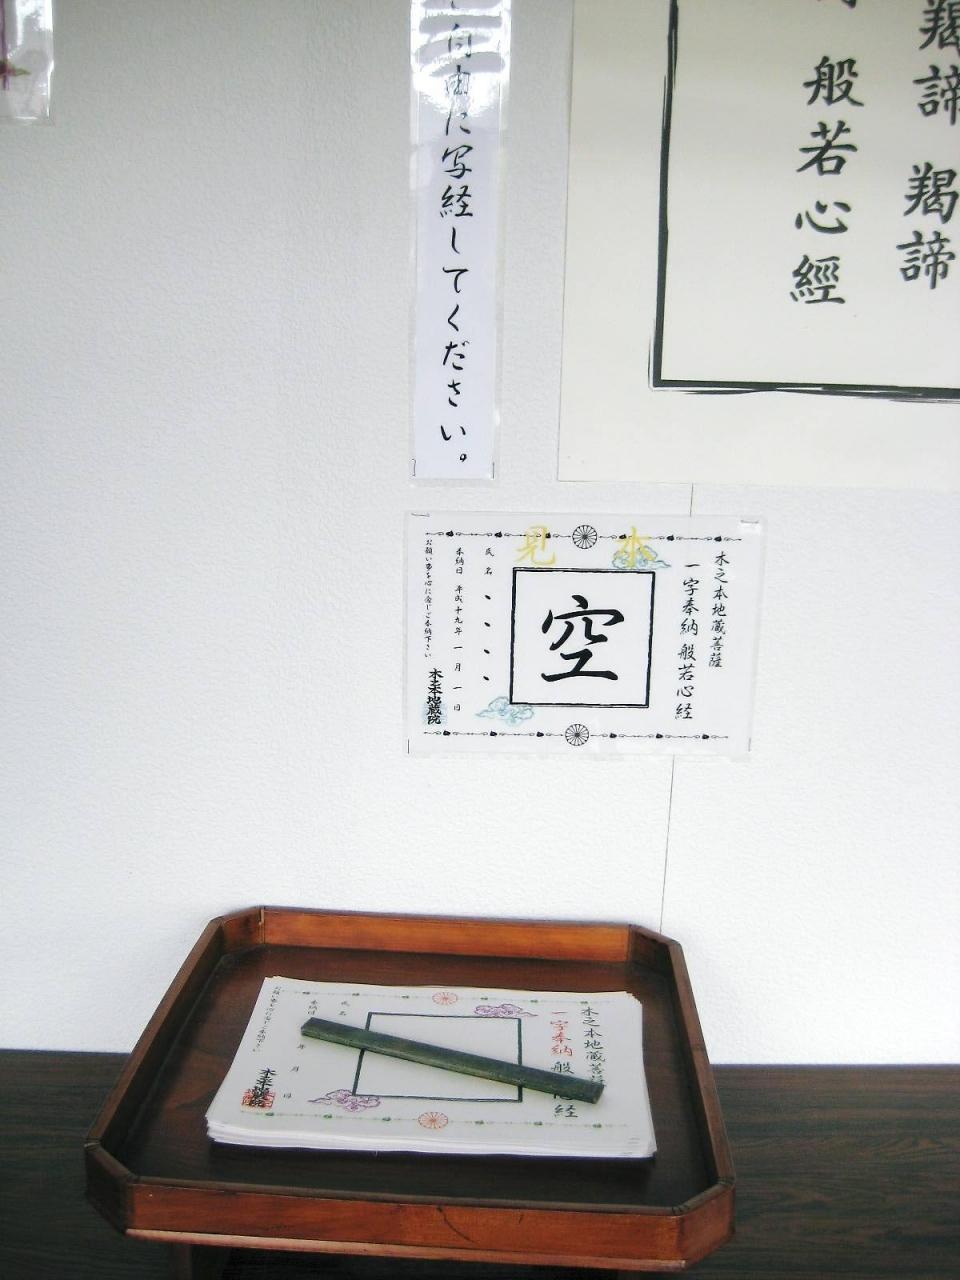 羯諦 羯諦
般若心經
自由に写経してください。
見本
木之本地蔵菩薩
一字奉納般若心経
空
氏名
奉納日 平成十九年 一月 一日
お願い事を心に念じご奉納下さい
木之本地蔵院
木之本地蔵菩薩
一字奉納 般 心経
氏名
奉納日 年 月 日
お願い事を心に念じご奉納下さい
木之本地蔵院